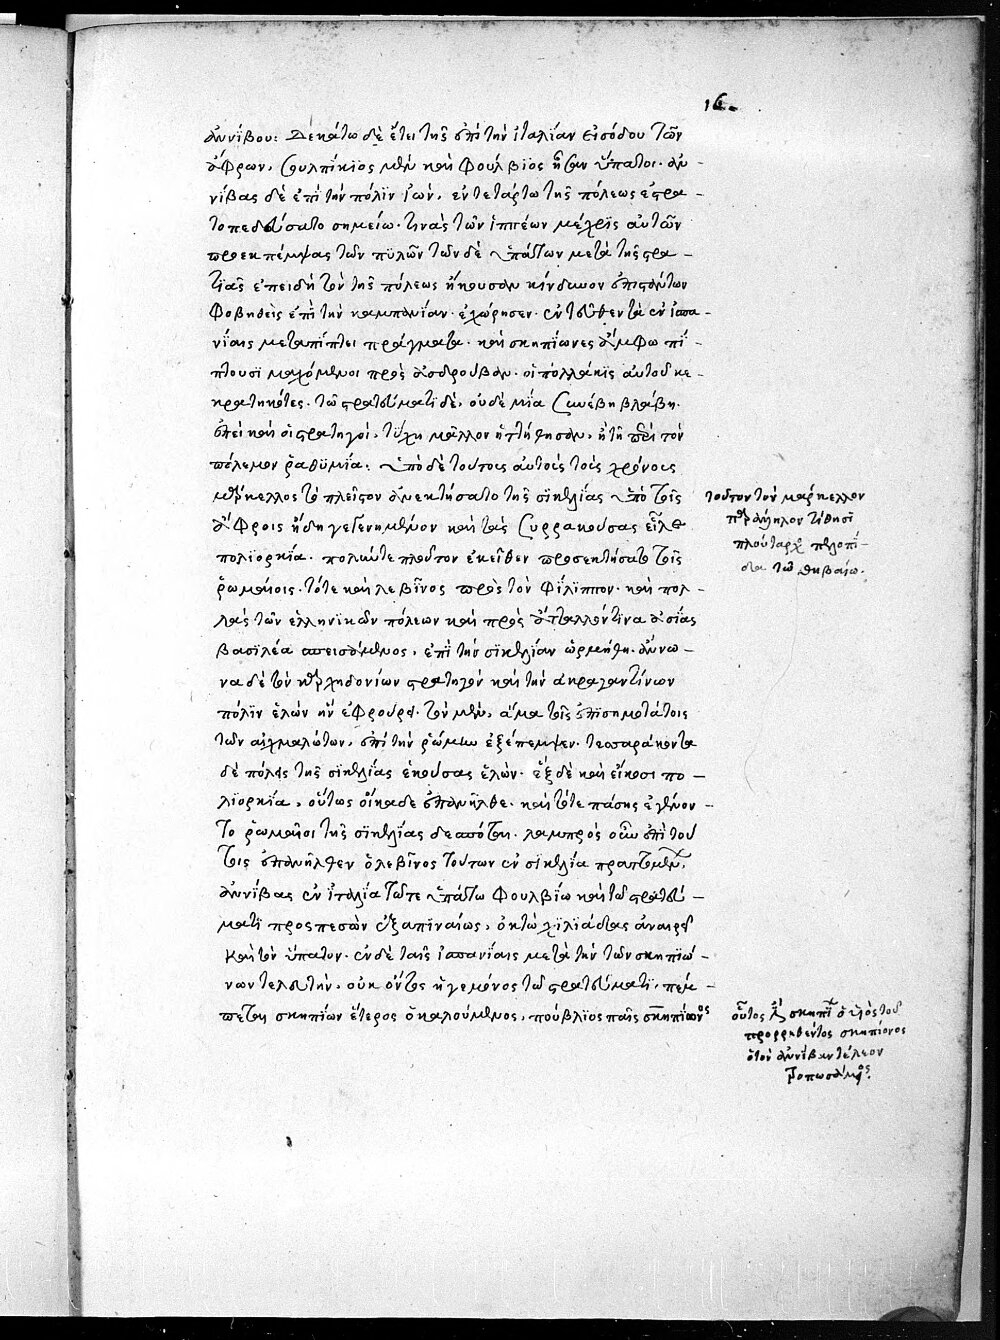 16.
ἀννίβου: Δεκάτω δὲ ἔτει τῆς ἐπὶ τὴν ἰταλίαν εἰσόδου τῶν
ἄφρων, Σουλπίκϊος μὲν καὶ Φούλβϊος ἦσαν ὕπατοι. ἀν -
νίβας δὲ ἐπὶ τὴν πόλϊν ἰὼν, ἐν τετάρτω τῆς πόλεως ἐστρα -
τοπεδεύσατο σημείω. τινὰς τῶν ἱππέων μέχρϊς αὐτῶν
προεκπέμψας τῶν πϋλῶν τῶν δὲ ὑπάτων μετὰ τῆς στρα -
τϊᾶς ἐπειδὴ τὸν τῆς πόλεως ἤκουσαν κίνδυνον ἐπιστάντων
Φοβηθεὶς ἐπὶ τὴν καμπανΐαν ἐχώρησεν. ἐντεῦθεν τὰ ἐν ἱσπα -
νΐαις μεταπίπτει πράγματα. καὶ σκηπΐωνες ἄμφω πί -
πτουσϊ μαχόμενοι πρὸς ἀσδρούβαν. οἱ πολλάκϊς αὐτοῦ κε -
κρατηκότες. τῶ στρατεύματϊ δὲ, οὐδεμΐα συνέβη βλάβη.
ἐπεὶ καὶ οἱ στρατηγοὶ, τύχη μᾶλλον ἡττήθησαν, ἢ τῆ περὶ τὸν
πόλεμον ῥαθϋμΐα: Ὑπὸ δὲ τούτοις αὐτοῖς τοῖς χρόνοις
μάρκελλος τὸ πλεῖστον ἀνεκτήσατο τῆς σϊκελΐας ὑπὸ τοῖς
ἄφροις ἤδη γεγενημένον καὶ τὰς Συρρακούσας εἷλε
πολϊορκΐα. πολύν τε πλοῦτον ἐκεῖθεν προσεκτήσατο τοῖς
ῥωμαίοις. τότε καὶ λεβῖνος πρὸς τὸν Φίλϊππον. καὶ πολ -
λὰς τῶν ἑλληνϊκῶν πόλεων καὶ πρὸς ἄτταλον τϊνα ἀσΐας
βασϊλέα σπεισάμενος, ἐπὶ τὴν σϊκελΐαν ὡρμήθη. ἄννω -
να δὲ τὸν καρχηδονίων στρατηγὸν καὶ τὴν ἀκραγαντΐνων
πόλϊν ἑλὼν ἣν ἐφρούρει τὸν μὲν, ἅμα τοῖς ἐπϊσημοτάτοις
τῶν αἰχμαλώτων, ἐπὶ τὴν ῥώμην ἐξέπεμψεν. τεσσαράκοντα
δὲ πόλεις τῆς σϊκελΐας ἑκούσας ἑλών. ἓξ δὲ καὶ εἴκοσι πο -
λϊορκΐα, οὕτως οἴκαδε ἐπανῆλθε. καὶ τότε πάσης ἐγένον -
το ῥωμαῖοι τῆς σϊκελΐας δεσπόται. λαμπρὸς οὖν ἐπὶ τού
τοις ἐπανῆλθεν ὁ λεβῖνος τούτων ἐν σϊκελΐα πραττομένων,
ἀννΐβας ἐν ἰταλΐα τῶ τε ὑπάτω Φουλβίω καὶ τῶ στρατεύ -
ματϊ προσπεσὼν ἐξαπιναίως, ὀκτὼ χϊλϊάδας ἀναιρεῖ
καὶ τὸν ὕπατον. ἐν δὲ ταῖς ἱσπανΐαις μετὰ τὴν τῶν σκηπϊώ -
νων τελευτὴν, οὐκ ὄντος ἡγεμόνος τῶ στρατεύματϊ, πέμ -
πεται σκηπΐων ἕτερος ὁ καλούμενος, πούβλϊος παῖς σκηπΐωνος
τοῦτον τὸν μάρκελλον
παράλληλον τίθησϊ
πλούταρχος πελοπί -
δα τῶ θηβαίω.
οὗτός ἐστι σκηπΐων ὁ υἱὸς τοῦ
προρρηθέντος σκηπίονος
ὁ τὸν ἀννΐβαν τέλεον
τροπωσάμενος.